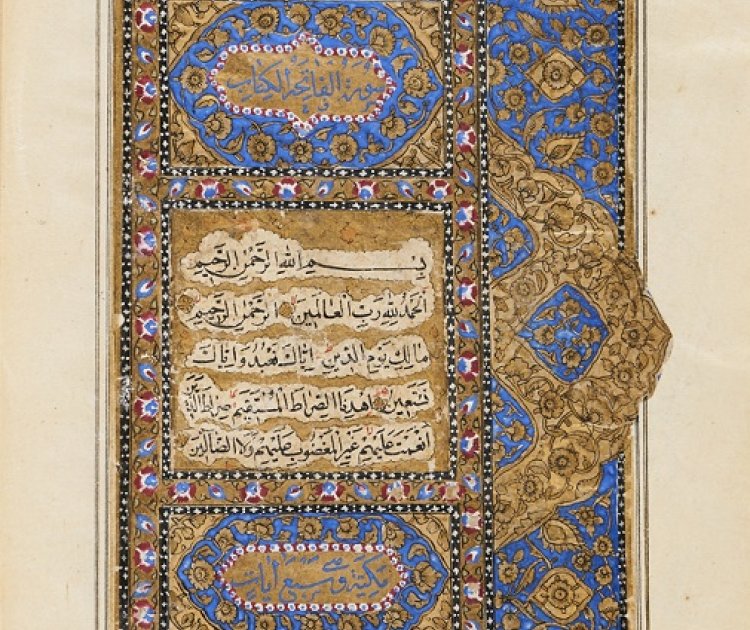 سورة الفاتحة الكتاب
بِسْمِ اللهِ الرَّحْمٰنِ الرَّحِيمِ
اَلْحَمْدُ لِلّٰهِ رَبِّ الْعَالَمِينَ الرَّحْمٰنِ الرَّحِيمِ
مَالِكِ يَوْمِ الدِّينِ اِيَّاكَ نَعْبُدُ وَاِيَّاكَ
نَسْتَعِينُ اِهْدِنَا الصِّرَاطَ الْمُسْتَقِيمَ صِرَاطَ الَّذِينَ
اَنْعَمْتَ عَلَيْهِمْ غَيْرِ الْمَغْضُوبِ عَلَيْهِمْ وَلَا الضَّالِّينَ
مكية وهي سبع آيات